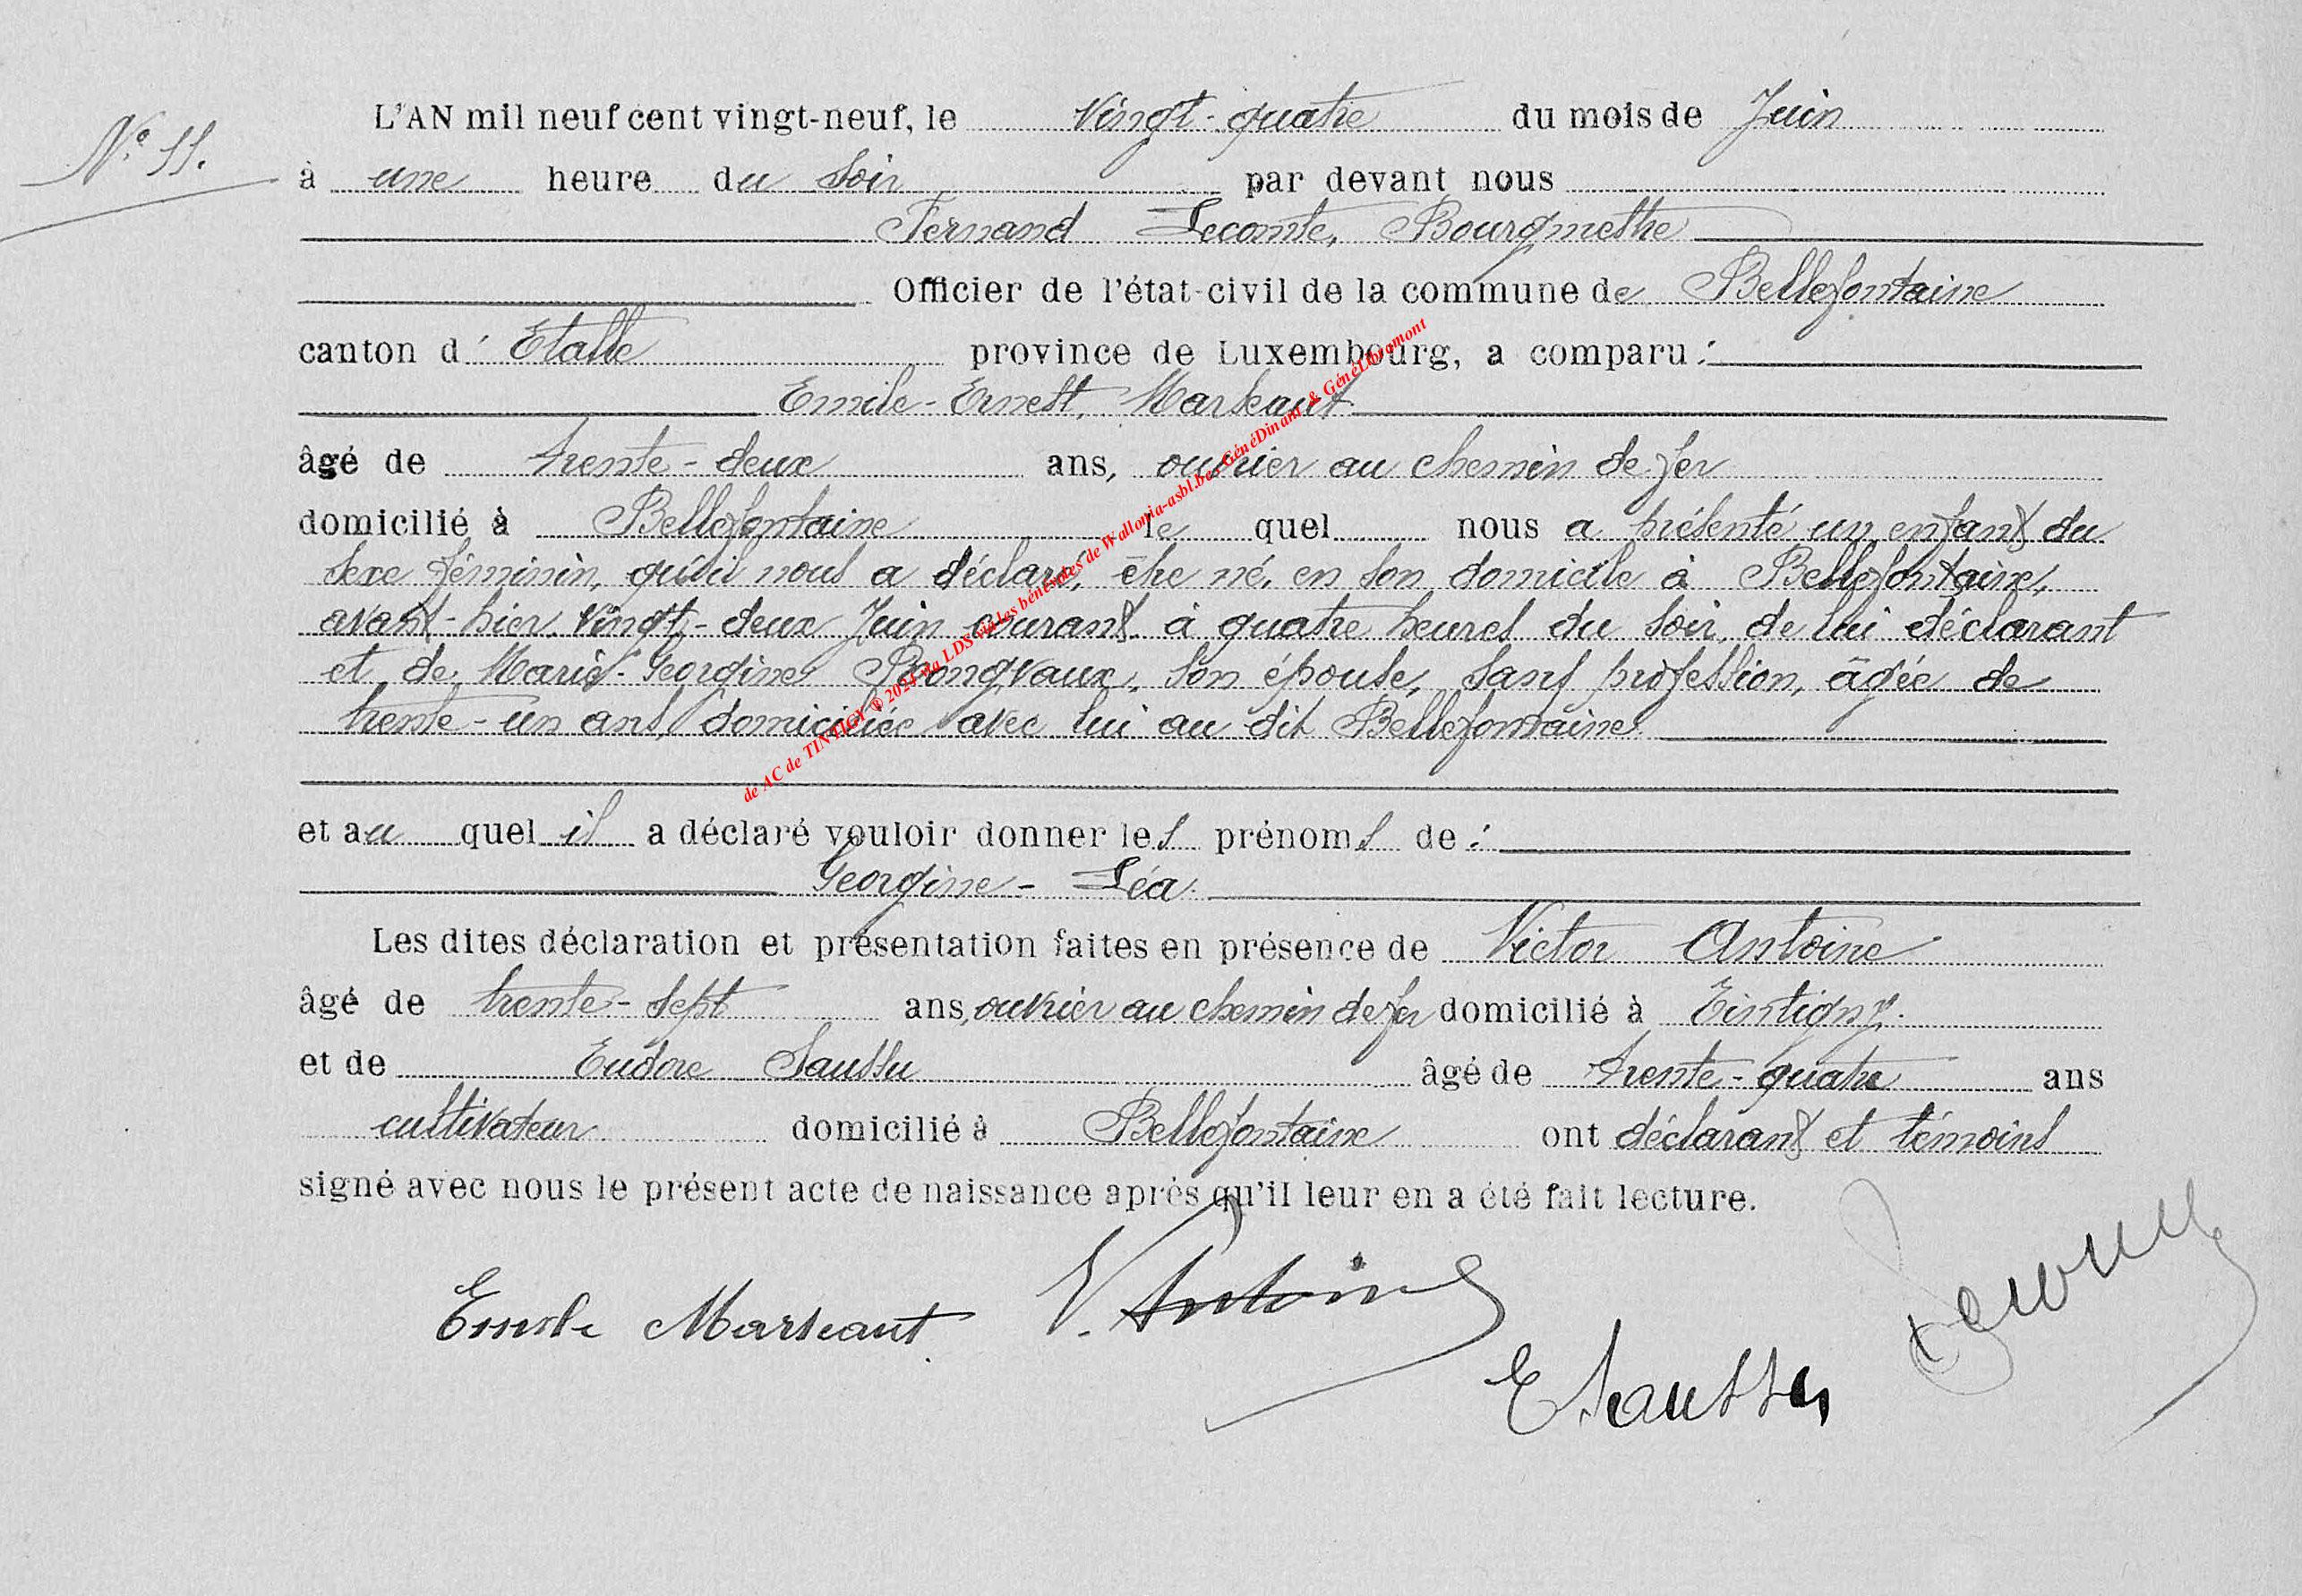 L'AN mil neuf cent vingt-neuf, le vingt-quatre du mois de Juin
N° 11.
à une heure du soir par devant nous
Fernand Lecomte, Bourgmestre
Officier de l'état-civil de la commune de Bellefontaine
canton d'Etalle province de Luxembourg, a comparu :
Emile-Ernest, Marseaut
âgé de trente-deux ans, ouvrier au chemin de fer
domicilié à Bellefontaine lequel nous a présenté un enfant du
sexe féminin, qu'il nous a déclaré, être né, en son domicile à Bellefontaine,
avant-hier, vingt-deux Juin courant à quatre heures du soir, de lui déclarant
et de Marie-Georgine Rongvaux, son épouse, sans profession, âgée de
trente-un ans, domiciliée avec lui au dit Bellefontaine
et au quel il a déclaré vouloir donner les prénoms de :
Georgine-Léa.
Les dites déclaration et présentation faites en présence de Victor Antoine
âgé de trente-sept ans, ouvrier au chemin de fer domicilié à Tintigny.
et de Eudore Saussu âgé de trente-quatre ans
cultivateur domicilié à Bellefontaine ont déclarant et témoins
signé avec nous le présent acte de naissance après qu'il leur en a été fait lecture.
Emile Marseaut V. Antoine
E Saussu
de AC de TINTIGY ® 2024 du LDS via les bénévoles de Wallonia-asbl.be - GénéDinant & GénéLibramont